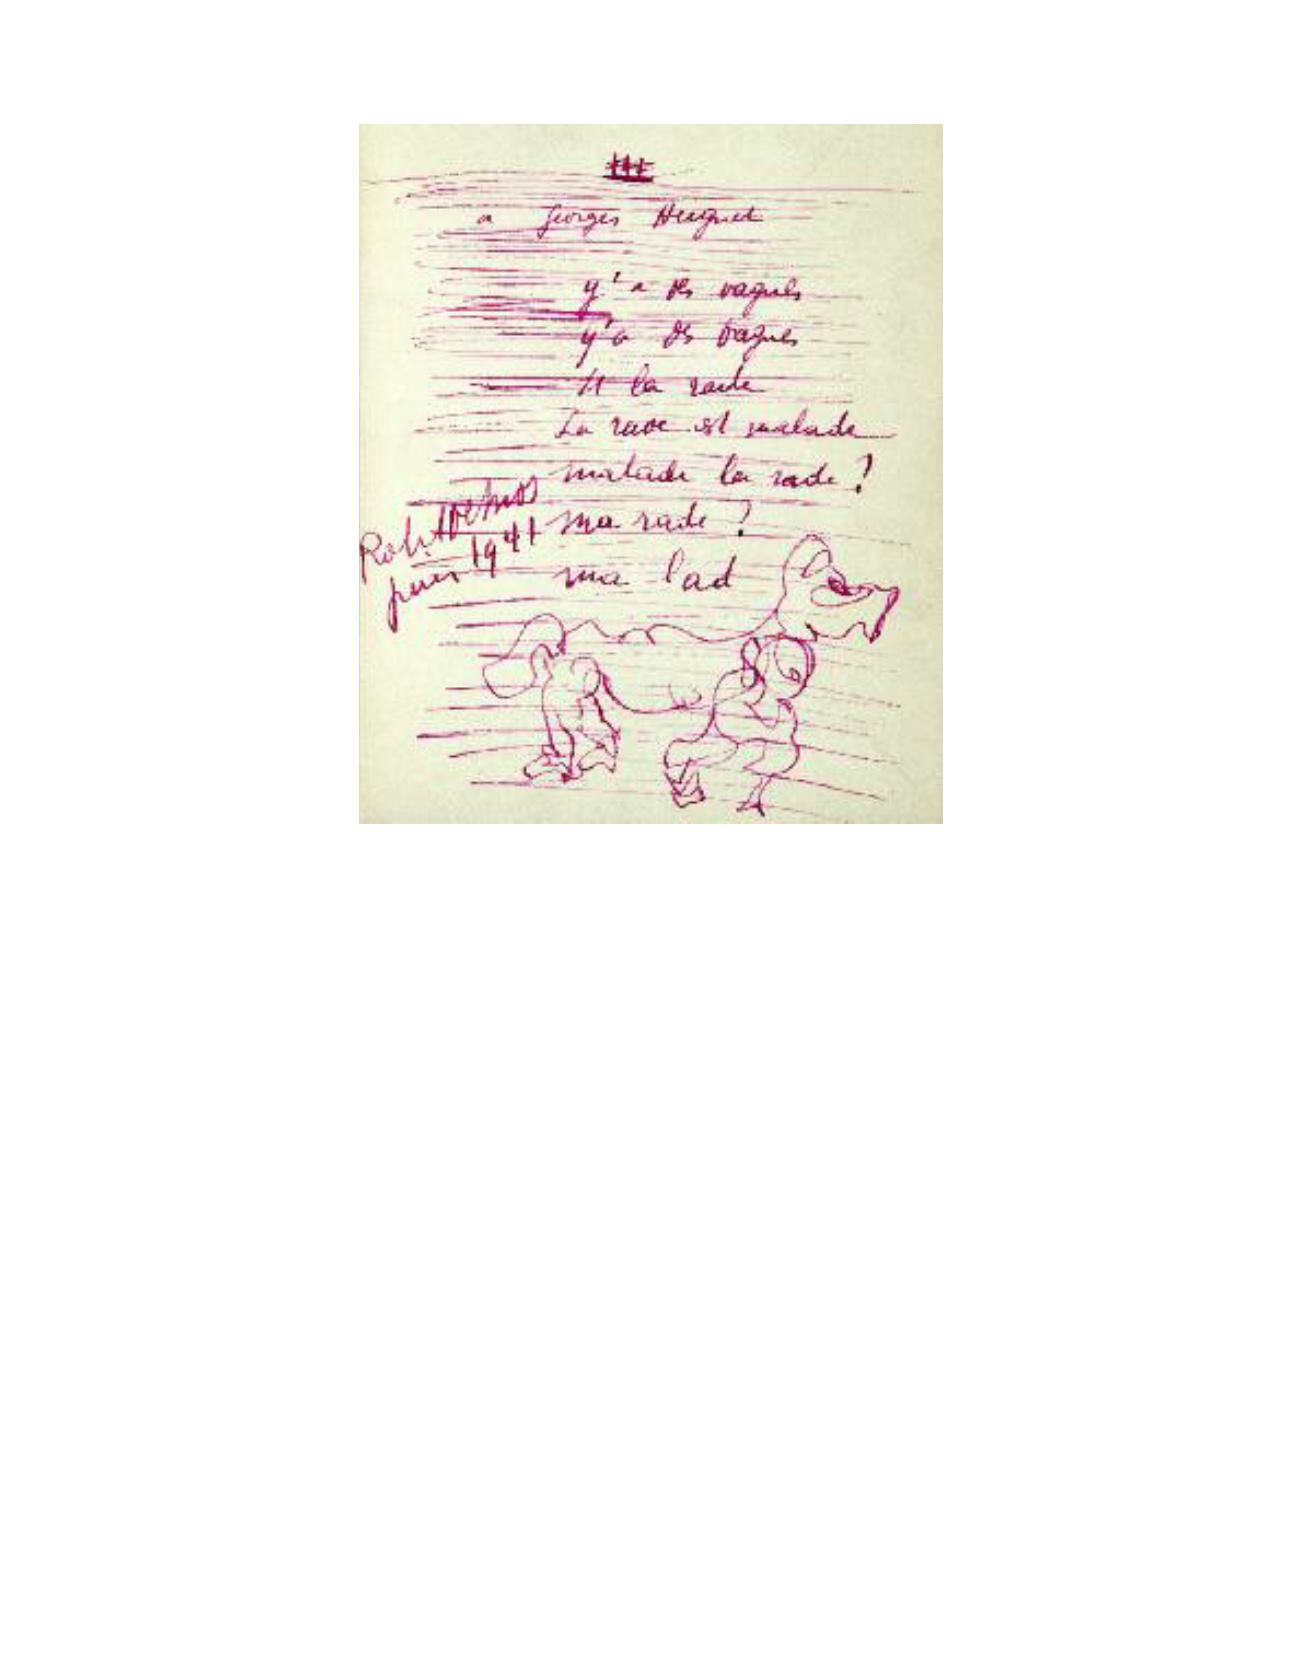 a Georges Hugnet
y'a des vagues
y'a des vagues
A la rade
La rade est malade
malade la rade ?
ma rade ?
ma lad
Robert Desnos
juin 1941